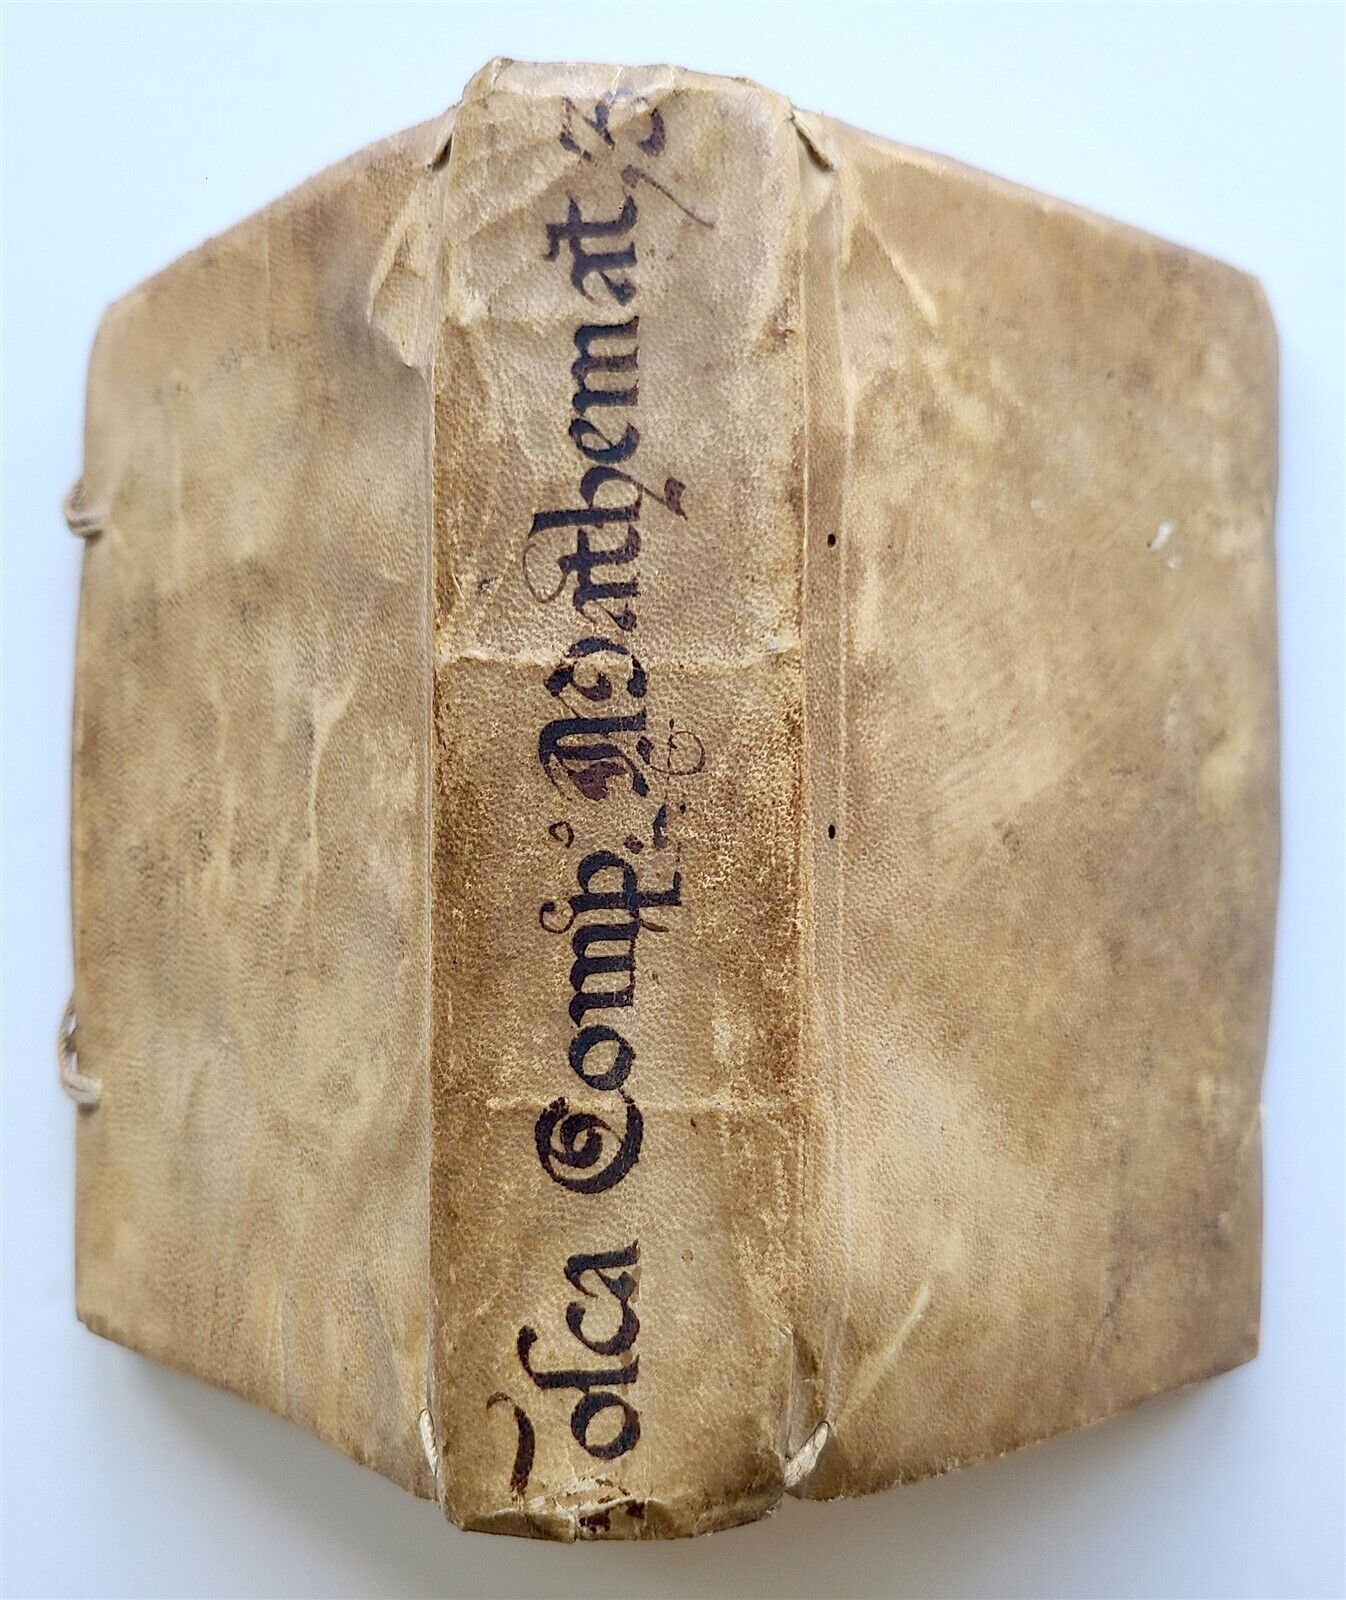 Tosca Comp.º Mathemat